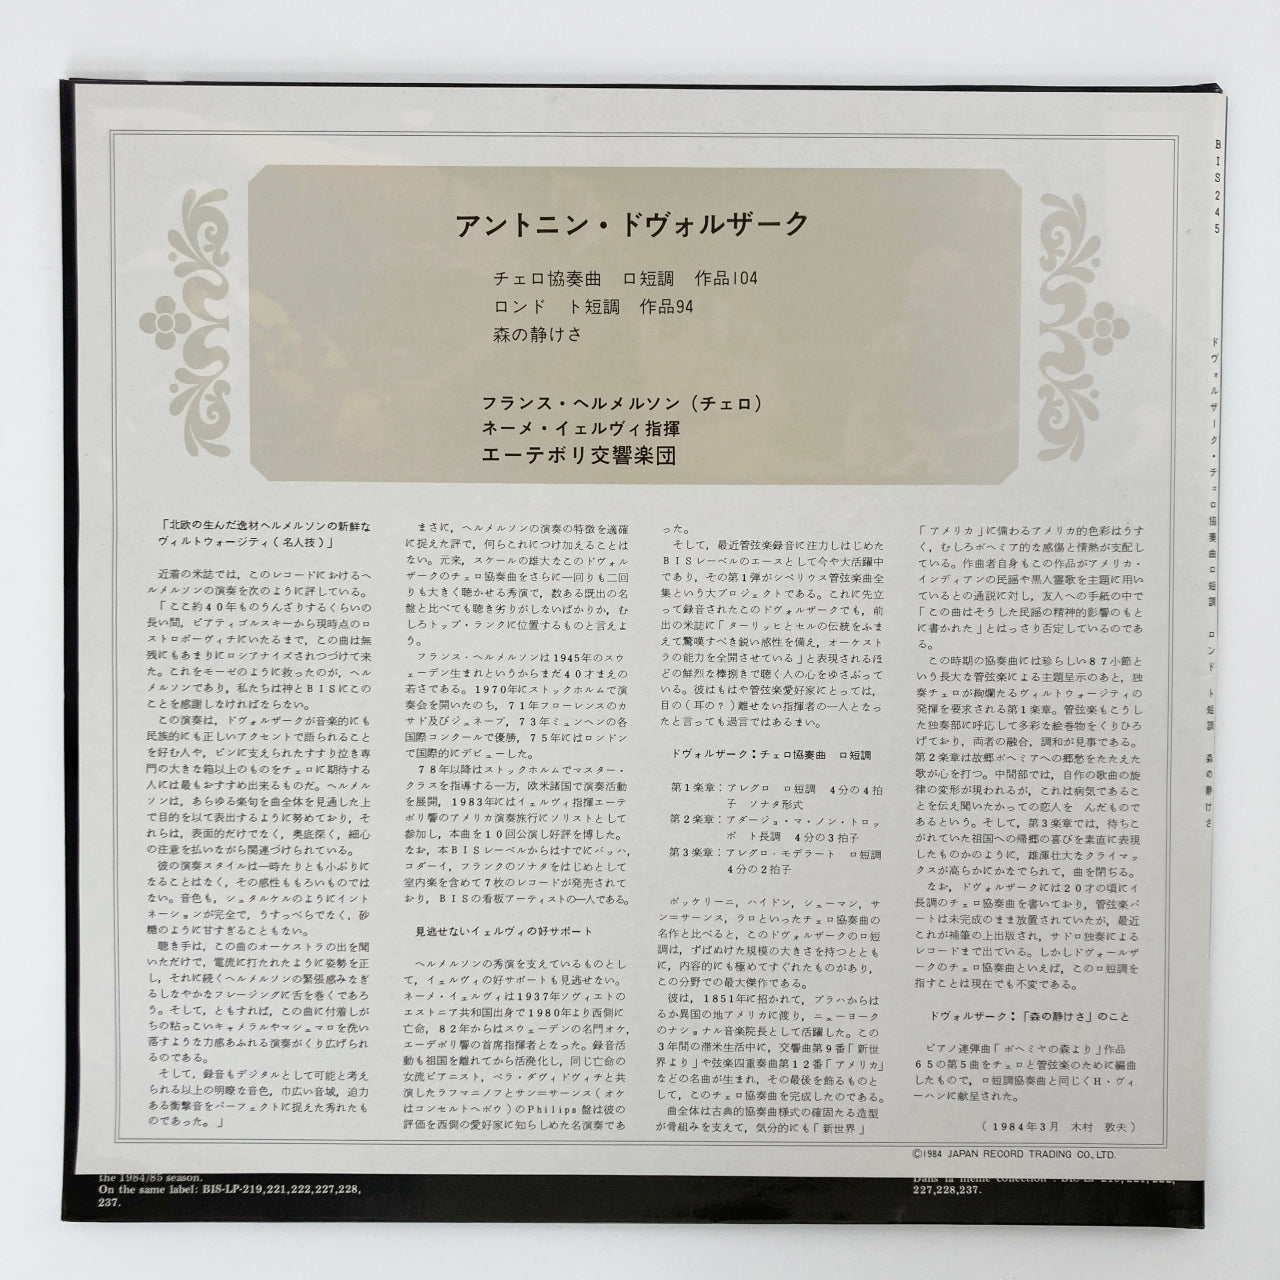 アントニン・ドヴォルザーク
チェロ協奏曲　ロ短調　作品104
ロンド　ト短調　作品94
森の静けさ
フランス・ヘルメルソン（チェロ）
ネーメ・イェルヴィ指揮
エーテボリ交響楽団
「北欧の生んだ逸材ヘルメルソンの新鮮な
ヴィルトウォージティ（名人技）」
近着の米誌では，このレコードにおけるヘ
ルメルソンの演奏を次のように評している。
「ここ約４０年ものうんざりするくらいの
長い間，ピアティゴルスキーから現時点のロ
ストロポーヴィチにいたるまで，この曲は無
残にもあまりにロシアナイズされつづけて来
た。これをモーゼのように救ったのが，ヘル
メルソンであり，私たちは神とＢＩＳにこの
ことを感謝しなければならない。
この演奏は，ドヴォルザークが音楽的にも
民族的にも正しいアクセントで語られること
を好む人や，ピンに支えられたすすり泣き専
門の大きな箱以上のものをチェロに期待する
人には最もおすすめ出来るものだ。ヘルメル
ソンは，あらゆる楽句を曲全体を見通した上
で目的を以て表出するように努めており，そ
れらは，表面的だけでなく，奥底深く，細心
の注意を払いながら関連づけられている。
彼の演奏スタイルは一時たりとも小ぶりに
なることはなく，その感性ももろいものでは
ない。音色も，シュタルケルのようにイント
ネーションが完全で，うすっぺらでなく，砂
糖のように甘すぎることもない。
聴き手は，この曲のオーケストラの出を聞
いただけで，電流に打たれたように姿勢を正
し，それに続くヘルメルソンの緊張感みなぎ
るしなやかなフレージングに舌を巻くであろ
う。そして，ともすれば，この曲に付着しが
ちの粘っこいキャメラルやマシュマロを洗い
落すような力感あふれる演奏がくり広げられ
るのである。
そして，録音もデジタルとして可能と考え
られる以上の明瞭な音色，巾広い音域，迫力
ある衝撃音をパーフェクトに捉えた秀れたも
のであった。」
まさに，ヘルメルソンの演奏の特徴を適確
に捉えた評で，何らこれにつけ加えることは
ない。元来，スケールの雄大なこのドヴォル
ザークのチェロ協奏曲をさらに一回りも二回
りも大きく聴かせる秀演で，数ある既出の名
盤と比べても聴き劣りがしないばかりか，む
しろトップ・ランクに位置するものと言えよ
う。
フランス・ヘルメルソンは1945年のスウ
ェーデン生まれというからまだ４０才まえの
若さである。1970年にストックホルムで演
奏会を開いたのち，７１年フローレンスのカ
サド及びジュネーブ，７３年ミュンヘンの各
国際コンクールで優勝，７５年にはロンドン
で国際的にデビューした。
７８年以降はストックホルムでマスター・
クラスを指導する一方，欧米諸国で演奏活動
を展開，1983年にはイェルヴィ指揮エーテ
ボリ響のアメリカ演奏旅行にソリストとして
参加し，本曲を１０回公演し好評を博した。
なお，本ＢＩＳレーベルからはすでにバッハ，
コダーイ，フランクのソナタをはじめとして
室内楽を含めて７枚のレコードが発売されて
おり，ＢＩＳの看板アーティストの一人である。
見逃せないイェルヴィの好サポート
ヘルメルソンの秀演を支えているものとし
て，イェルヴィの好サポートも見逃せない。
ネーメ・イェルヴィは1937年ソヴィエトの
エストニア共和国出身で1980年より西側に
亡命，８２年からはスウェーデンの名門オケ，
エーデボリ響の首席指揮者となった。録音活
動も祖国を離れてから活発化し，同じ亡命の
女流ピアニスト，ベラ・ダヴィドヴィチと共
演したラフマニノフとサン＝サーンス（オケ
はコンセルトヘボウ）のPhilips盤は彼の
評価を西側の愛好家に知らしめた名演奏であ
った。
そして，最近管弦楽録音に注力しはじめた
ＢＩＳレーベルのエースとして今や大活躍中
であり，その第１弾がシベリウス管弦楽曲全
集という大プロジェクトである。これに先立
って録音されたこのドヴォルザークでも，前
出の米誌に「ターリッヒとセルの伝統をふま
えて驚嘆すべき鋭い感性を備え，オーケスト
ラの能力を全開させている」と表現されるほ
どの鮮烈な棒捌きで聴く人の心をゆさぶって
いる。彼はもはや管弦楽愛好家にとっては，
目の（耳の？）離せない指揮者の一人となっ
たと言っても過言ではあるまい。
ドヴォルザーク：チェロ協奏曲　ロ短調
第１楽章：アレグロ　ロ短調　４分の４拍
子　ソナタ形式
第２楽章：アダージョ・マ・ノン・トロッ
ポ　ト長調　４分の３拍子
第３楽章：アレグロ・モデラート　ロ短調
４分の２拍子
ボッケリーニ，ハイドン，シューマン，サ
ン＝サーンス，ラロといったチェロ協奏曲の
名作と比べると，このドヴォルザークのロ短
調は，ずばぬけた規模の大きさを持つととも
に，内容的にも極めてすぐれたものがあり，
この分野での最大傑作である。
彼は，1851年に招かれて，プラハからは
るか異国の地アメリカに渡り，ニューヨーク
のナショナル音楽院長として活躍した。この
３年間の滞米生活中に，交響曲第９番「新世
界より」や弦楽四重奏曲第１２番「アメリカ」
などの名曲が生まれ，その最後を飾るものと
して，このチェロ協奏曲を完成したのである。
曲全体は古典的協奏曲様式の確固たる造型
が骨組みを支えて，気分的にも「新世界」
「アメリカ」に備わるアメリカ的色彩はうす
く，むしろボヘミア的な感傷と情熱が支配し
ている。作曲者自身もこの作品がアメリカ・
インディアンの民謡や黒人霊歌を主題に用い
ているとの通説に対し，友人への手紙の中で
「この曲はそうした民謡の精神的影響のもと
に書かれた」とはっきり否定しているのであ
る。
この時期の協奏曲には珍らしい８７小節と
いう長大な管弦楽による主題呈示のあと，独
奏チェロが絢爛たるヴィルトウォージティの
発揮を要求される第１楽章。管弦楽もこうし
た独奏部に呼応して多彩な絵巻物をくりひろ
げており，両者の融合，調和が見事である。
第２楽章は故郷ボヘミアへの郷愁をたたえた
歌が心を打つ。中間部では，自作の歌曲の旋
律の変形が現われるが，これは病気であるこ
とを伝え聞いたかっての恋人を　んだもので
あるという。そして，第３楽章では，待ちこ
がれていた祖国への帰郷の喜びを素直に表現
したものかのように，雄渾壮大なクライマッ
クスが高らかにかなでられて，曲を閉ぢる。
なお，ドヴォルザークには２０才の頃にイ
長調のチェロ協奏曲を書いており，管弦楽パ
ートは未完成のまま放置されていたが，最近
これが補筆の上出版され，サドロ独奏による
レコードまで出ている。しかしドヴォールザ
ークのチェロ協奏曲といえば，このロ短調を
指すことは現在でも不変である。
ドヴォルザーク：「森の静けさ」のこと
ピアノ連弾曲「ボヘミヤの森より」作品
６５の第５曲をチェロと管弦楽のために編曲
したもので，ロ短調協奏曲と同じくＨ・ヴィ
ーハンに献呈された。
（1984年３月　木村　敦夫）
©1984 JAPAN RECORD TRADING CO., LTD.
BIS 245　ドヴォルザーク・チェロ協奏曲ロ短調　ロンド　ト短調　森の静けさ
the 1984/85 season.
On the same label: BIS-LP-219,221,222,227,228,
237.
Dans la même collection : BIS-LP-219,221,222,
227,228,237.